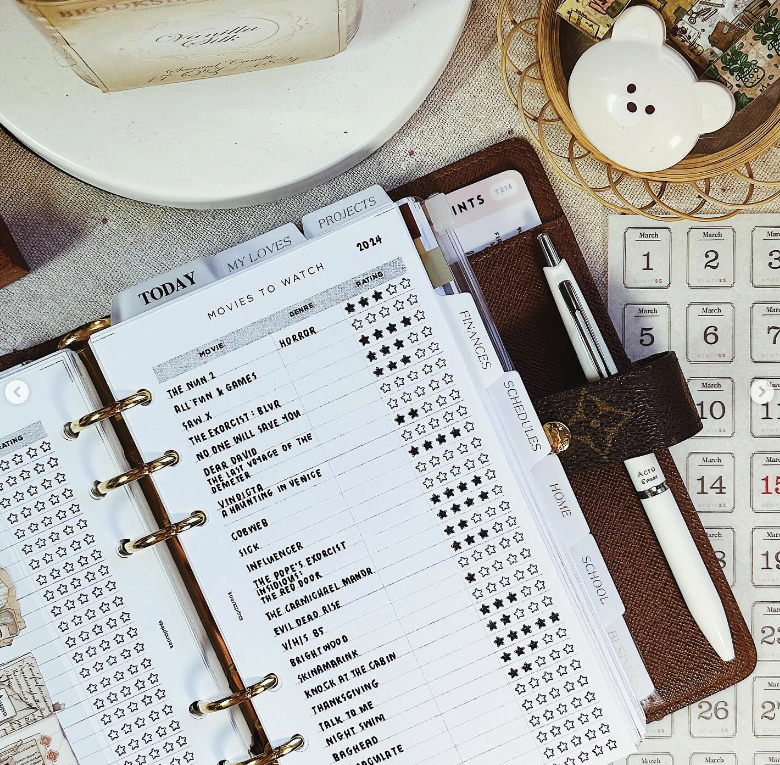 BROOKSIDE
Vanilla
Silk
TODAY
MY LOVES
PROJECTS
2024
MOVIES TO WATCH
MOVIE
GENRE
RATING
THE NUN 2
HORROR
ALL FUN & GAMES
SAW X
THE EXORCIST: BLVR
NO ONE WILL SAVE YOU
DEAR DAVID
THE LAST VOYAGE OF THE
DEMETER
VINDICTA
A HAUNTING IN VENICE
COBWEB
SICK
INFLUENCER
THE POPE'S EXORCIST
INSIDIOUS:
THE RED DOOR
THE CARMICHAEL MANOR
EVIL DEAD RISE
V/H/S 85
BRIGHTWOOD
SKINAMARINK
KNOCK AT THE CABIN
THANKSGIVING
TALK TO ME
NIGHT SWIM
BAGHEAD
RATING
INTS
T216
FINANCES
SCHEDULES
HOME
SCHOOL
Acro
March
1
March
2
March
3
March
5
March
6
March
7
March
10
March
11
March
14
March
15
March
19
March
March
26
March
March
March